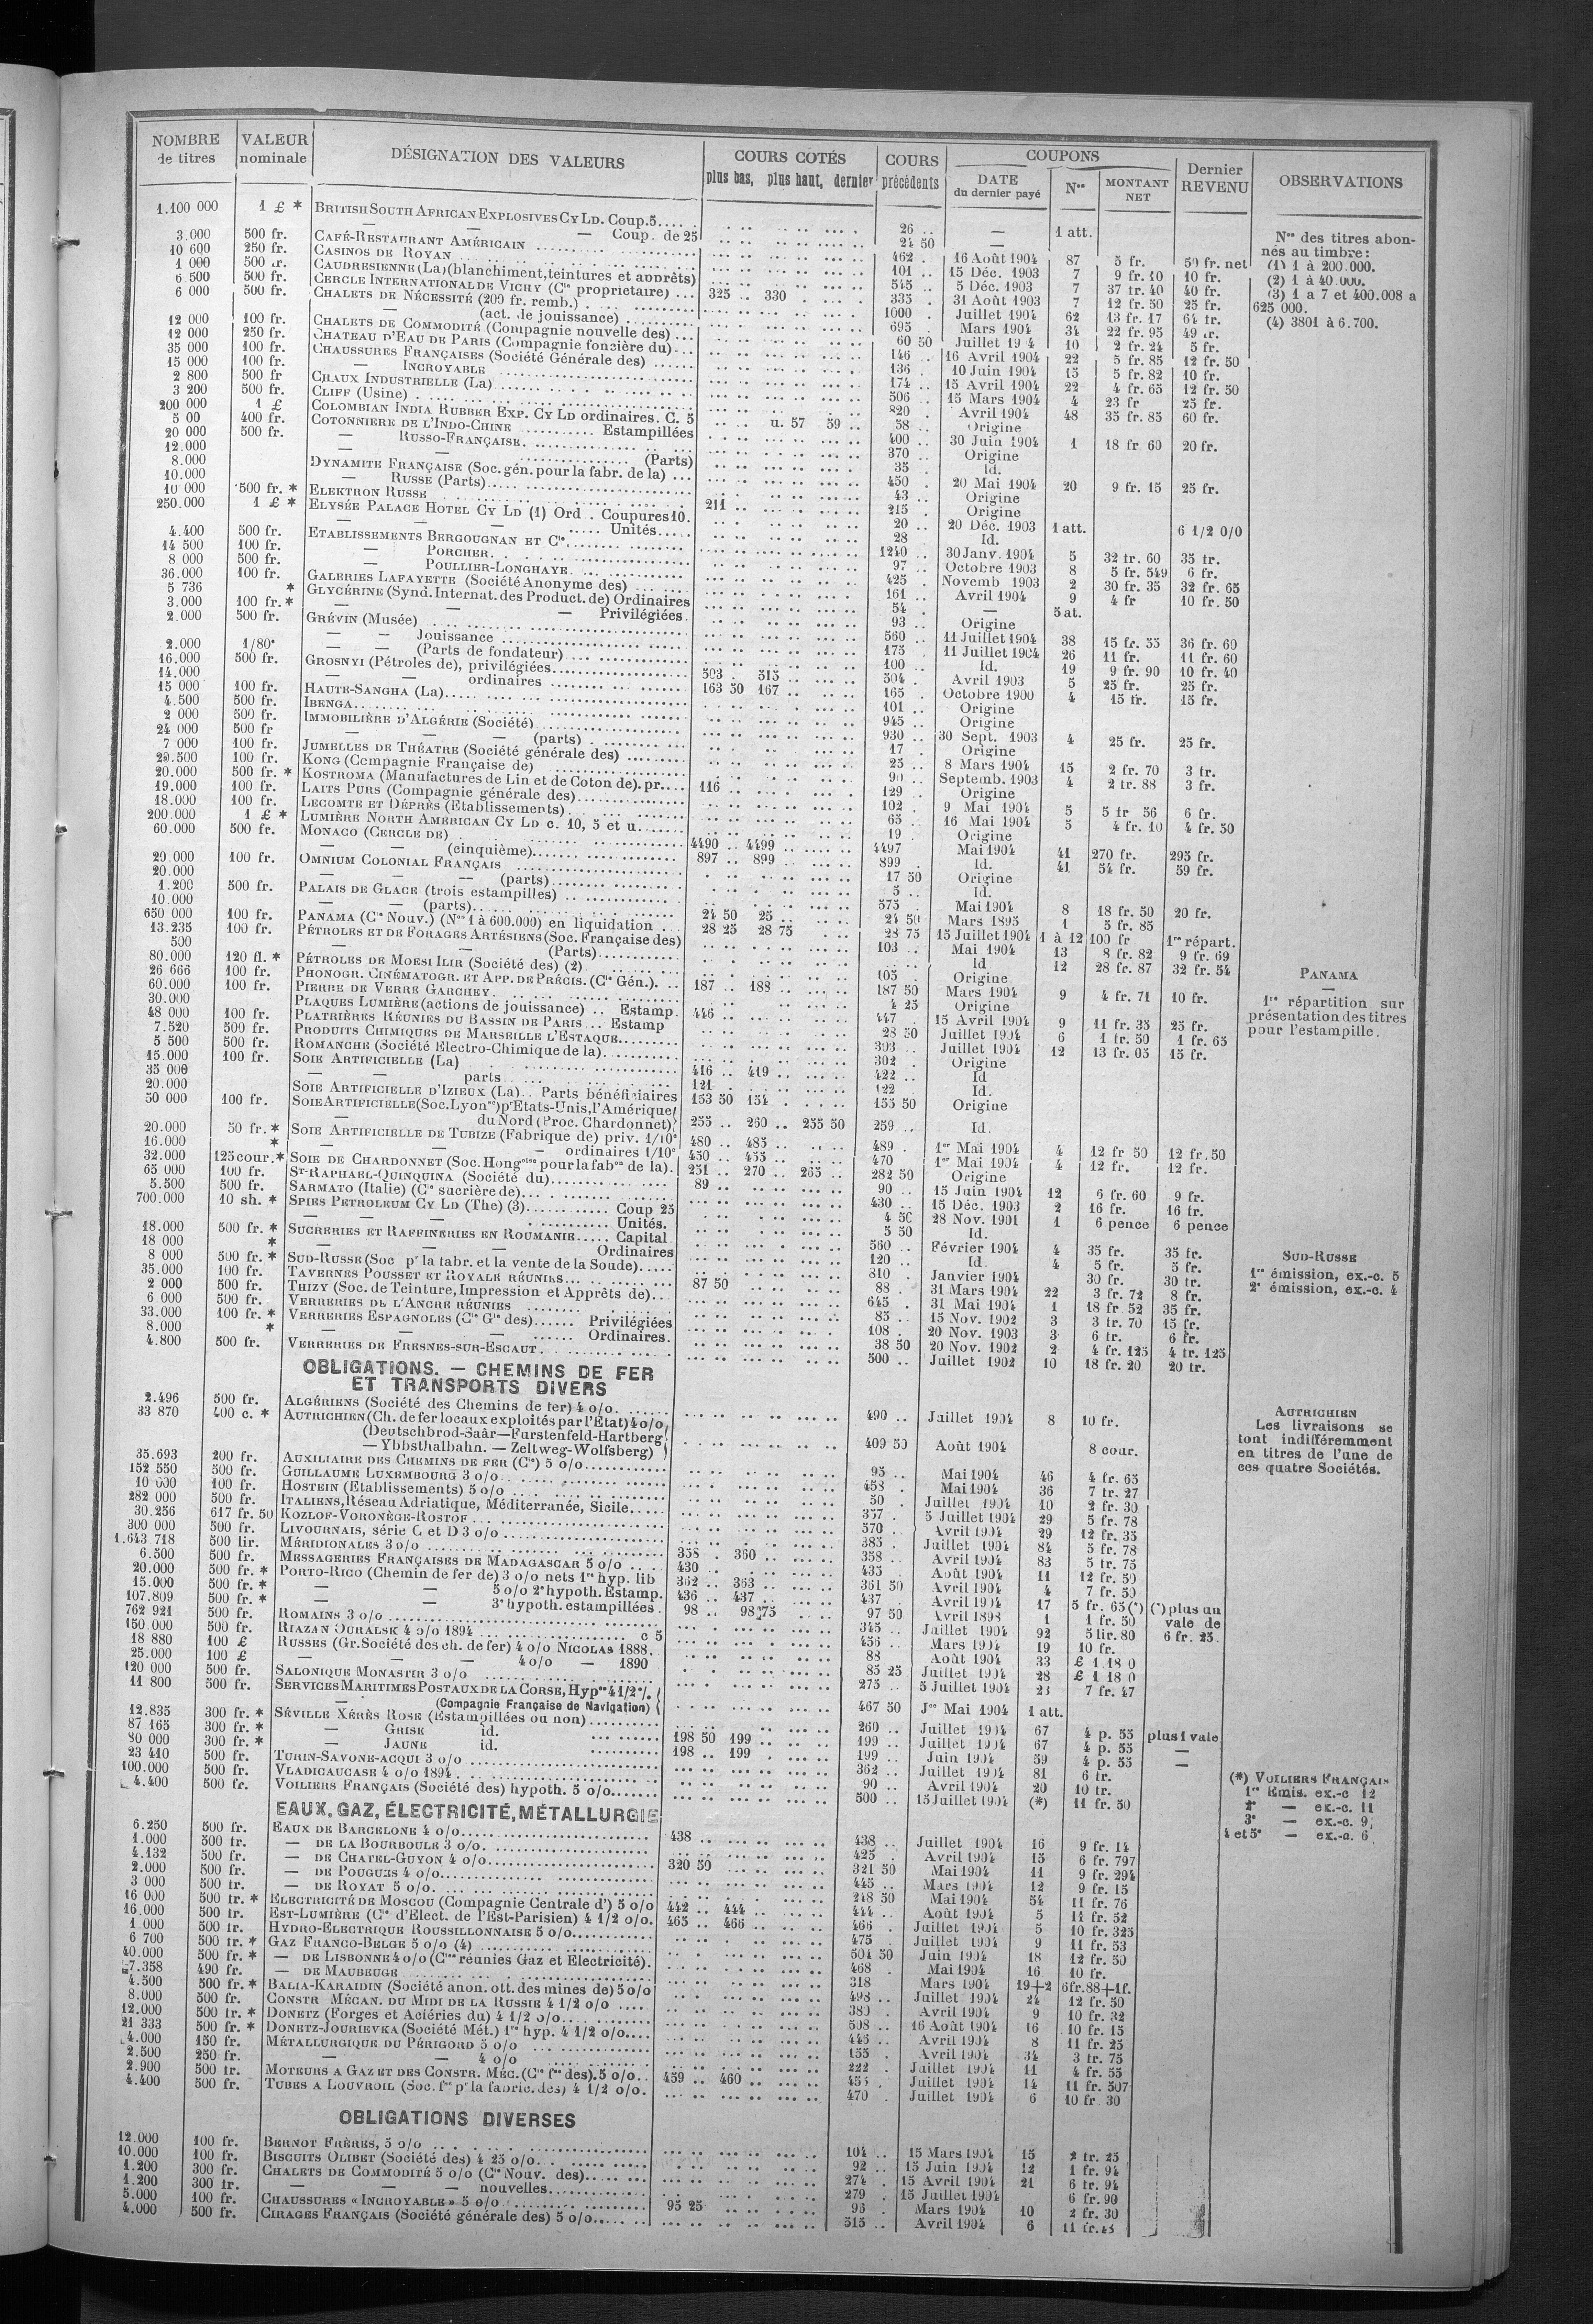 NOMBRE de titres | VALEUR nominale | DÉSIGNATION DES VALEURS | COURS COTÉS plus bas, plus haut, dernier | COURS précédents | COUPONS DATE du dernier payé | Nos | MONTANT NET | Dernier REVENU | OBSERVATIONS
1.100 000 1 £ * BRITISH SOUTH AFRICAN EXPLOSIVES CY LD. Coup. 5 26 .. — 1 att.
— — Coup. de 25 24 50 —
3.000 500 fr. CAFÉ-RESTAURANT AMÉRICAIN 462 . 16 Août 1904 87 5 fr. 50 fr. net
10 600 250 fr. CASINOS DE ROYAN 101 .. 15 Déc. 1903 7 9 fr. 10 fr.
1 000 500 fr. CAUDRESIENNE (La) (blanchiment, teintures et apprêts) 545 .. 5 Déc. 1903 7 37 fr. 40 40 fr.
6 500 500 fr. CERCLE INTERNATIONAL DE VICHY (Cie propriétaire) ... 325 .. 330 335 . 31 Août 1903 7 12 fr. 50 25 fr.
6 000 500 fr. CHALETS DE NÉCESSITÉ (200 fr. remb.) 1000 . Juillet 1904 62 13 fr. 17 64 fr.
— (act. de jouissance) 695 . Mars 1904 34 22 fr. 95 49 fr.
12 000 100 fr. CHALETS DE COMMODITÉ (Compagnie nouvelle des) 60 50 Juillet 19 4 10 2 fr. 24 5 fr.
12 000 250 fr. CHATEAU D'EAU DE PARIS (Compagnie foncière du) 146 .. 16 Avril 1904 22 5 fr. 85 12 fr. 50
35 000 100 fr. CHAUSSURES FRANÇAISES (Société Générale des) 136 . 10 Juin 1904 15 5 fr. 82 10 fr.
15 000 100 fr. — INCROYABLE 174 .. 15 Avril 1904 22 4 fr. 65 12 fr. 50
2 800 500 fr CHAUX INDUSTRIELLE (La) 506 .. 15 Mars 1904 4 23 fr 25 fr.
3 200 500 fr. CLIFF (Usine) 820 . Avril 1904 48 35 fr. 85 60 fr.
200 000 1 £ COLOMBIAN INDIA RUBBER EXP. CY LD ordinaires. C. 5 u. 57 59 .. 58 .. Origine
5 00 400 fr. COTONNIERE DE L'INDO-CHINE Estampillées 400 .. 30 Juin 1904 1 18 fr 60 20 fr.
20 000 500 fr. — RUSSO-FRANÇAISE 370 .. Origine
12.000 — (Parts) 35 . Id.
8.000 DYNAMITE FRANÇAISE (Soc. gén. pour la fabr. de la) ... 450 . 20 Mai 1904 20 9 fr. 15 25 fr.
10.000 — RUSSE (Parts) 43 .. Origine
10 000 500 fr. * ELEKTRON RUSSE 211 .. 215 . Origine
250.000 1 £ * ELYSÉE PALACE HOTEL CY LD (1) Ord . Coupures 10. 20 .. 20 Déc. 1903 1 att. 6 1/2 0/0
— Unités 28 Id.
4.400 500 fr. ETABLISSEMENTS BERGOUGNAN ET Cie 1240 .. 30 Janv. 1904 5 32 fr. 60 35 fr.
14 500 100 fr. — PORCHER 97 .. Octobre 1903 8 5 fr. 549 6 fr.
8 000 500 fr. — POULLIER-LONGHAYE 425 . Novemb 1903 2 30 fr. 35 32 fr. 65
36.000 100 fr. GALERIES LAFAYETTE (Société Anonyme des) 161 .. Avril 1904 9 4 fr 10 fr. 50
5 736 * GLYCÉRINE (Synd. Internat. des Product. de) Ordinaires 54 . — 5 at.
3.000 100 fr. * — — Privilégiées 93 .. Origine
2.000 500 fr. GRÉVIN (Musée) 560 .. 11 Juillet 1904 38 15 fr. 35 36 fr. 60
— — Jouissance 175 . 11 Juillet 1904 26 11 fr. 11 fr. 60
2.000 1/80e — — (Parts de fondateur) 100 .. Id. 19 9 fr. 90 10 fr. 40
16.000 500 fr. GROSNYI (Pétroles de), privilégiées 503 . 515 504 . Avril 1903 5 25 fr. 25 fr.
14.000 — ordinaires 163 50 167 .. 165 . Octobre 1900 4 15 fr. 15 fr.
15 000 100 fr. HAUTE-SANGHA (La) 101 .. Origine
4.500 500 fr. IBENGA 945 .. Origine
2 000 500 fr. IMMOBILIÈRE D'ALGÉRIE (Société) 930 .. 30 Sept. 1903 4 25 fr. 25 fr.
24 000 500 fr — — (parts) 17 . Origine
7 000 100 fr. JUMELLES DE THÉATRE (Société générale des) 25 .. 8 Mars 1904 15 2 fr. 70 3 fr.
20.500 100 fr. KONG (Compagnie Française de) 90 .. Septemb. 1903 4 2 fr. 88 3 fr.
20.000 500 fr. * KOSTROMA (Manufactures de Lin et de Coton de). pr. 116 129 .. Origine
19.000 100 fr. LAITS PURS (Compagnie générale des) 102 . 9 Mai 1904 5 5 fr 56 6 fr.
18.000 100 fr. LECOMTE ET DÉPRÈS (Etablissements) 65 .. 16 Mai 1904 5 4 fr. 10 4 fr. 50
200.000 1 £ * LUMIÈRE NORTH AMERICAN CY LD c. 10, 5 et u. 19 . Origine
60.000 500 fr. MONACO (CERCLE DE) 4490 .. 4499 .. 4497 Mai 1904 41 270 fr. 295 fr.
— (cinquième) 897 .. 899 .. 899 Id. 41 54 fr. 59 fr.
20.000 100 fr. OMNIUM COLONIAL FRANÇAIS 17 50 Origine
20.000 — — (parts) 5 .. Id.
1.200 500 fr. PALAIS DE GLACE (trois estampilles) 575 . Mai 1904 8 18 fr. 50 20 fr.
10.000 — — (parts) 24 50 25 .. 24 50 Mars 1895 1 5 fr. 85
650 000 100 fr. PANAMA (Cie Nouv.) (Nos 1 à 600.000) en liquidation 28 25 28 75 28 75 15 Juillet 1904 1 à 12 100 fr 1re répart.
13.235 100 fr. PÉTROLES ET DE FORAGES ARTÉSIENS (Soc. Française des) 103 .. Mai 1904 13 8 fr. 82 9 fr. 69
500 — — (Parts) Id 12 28 fr. 87 32 fr. 54
80.000 120 fl. * PÉTROLES DE MOESI ILIR (Société des) (2) 105 . Origine
26 666 100 fr. PHONOGR. CINÉMATOGR. ET APP. DE PRÉCIS. (Cie Gén.). 187 .. 188 .. 187 50 Mars 1904 9 4 fr. 71 10 fr.
60.000 100 fr. PIERRE DE VERRE GARCHEY 4 25 Origine
30.000 PLAQUES LUMIÈRE (actions de jouissance) .. Estamp. 446 .. 447 15 Avril 1904 9 11 fr. 35 25 fr.
48 000 100 fr. PLATRIÈRES RÉUNIES DU BASSIN DE PARIS ... Estamp 28 50 Juillet 1904 6 1 fr. 50 1 fr. 65
7.520 500 fr. PRODUITS CHIMIQUES DE MARSEILLE L'ESTAQUE 303 .. Juillet 1904 12 13 fr. 05 15 fr.
5 500 500 fr. ROMANCHE (Société Electro-Chimique de la) 302 . Origine
15.000 100 fr. SOIE ARTIFICIELLE (La) 416 .. 419 .. 422 .. Id
35 000 — — parts 121 . 122 Id.
20.000 SOIE ARTIFICIELLE D'IZIEUX (La) . . Parts bénéficiaires 153 50 154 . 155 50 Origine
50 000 100 fr. SOIE ARTIFICIELLE (Soc. Lyonse) pr Etats-Unis, l'Amérique
— du Nord (Proc. Chardonnet) 255 .. 260 .. 255 50 259 .. Id.
20.000 50 fr. * SOIE ARTIFICIELLE DE TUBIZE (Fabrique de) priv. 1/10e 480 .. 485 .. 489 . 1er Mai 1904 4 12 fr 50 12 fr. 50
16.000 * — — ordinaires 1/10e 450 .. 455 .. 470 1er Mai 1904 4 12 fr. 12 fr.
32.000 125 cour. * SOIE DE CHARDONNET (Soc. Hongroise pour la fabon de la). 251 .. 270 .. 265 .. 282 50 Origine
65 000 100 fr. ST-RAPHAEL-QUINQUINA (Société du) 89 .. 90 .. 15 Juin 1904 12 6 fr. 60 9 fr.
5.500 500 fr. SARMATO (Italie) (Cie sucrière de) 430 .. 15 Déc. 1903 2 16 fr. 16 fr.
700.000 10 sh. * SPIES PETROLEUM CY LD (The) (3) Coup 25 4 50 28 Nov. 1901 1 6 pence 6 pence
— — — Unités. 5 50 Id.
18.000 500 fr. * SUCRERIES ET RAFFINERIES EN ROUMANIE Capital 560 .. Février 1904 4 35 fr. 35 fr.
18 000 * — — Ordinaires 120 .. Id. 4 5 fr. 5 fr.
8 000 500 fr. * SUD-RUSSE (Soc pr la fabr. et la vente de la Soude) 810 . Janvier 1904 30 fr. 30 fr.
35.000 100 fr. TAVERNES POUSSET ET ROYALE RÉUNIES 87 50 88 . 31 Mars 1904 22 3 fr. 72 8 fr.
2 000 500 fr. THIZY (Soc. de Teinture, Impression et Apprêts de) 645 . 31 Mai 1904 1 18 fr 52 35 fr.
6 000 500 fr. VERRERIES DE L'ANCRE RÉUNIES 85 .. 15 Nov. 1902 3 3 fr. 70 15 fr.
33.000 100 fr. * VERRERIES ESPAGNOLES (Cie Gle des) Privilégiées 108 . 20 Nov. 1903 3 6 fr. 6 fr.
8.000 * — — Ordinaires. 38 50 20 Nov. 1902 2 4 fr. 125 4 fr. 125
4.800 500 fr. VERRERIES DE FRESNES-SUR-ESCAUT 500 .. Juillet 1902 10 18 fr. 20 20 fr.
OBLIGATIONS. — CHEMINS DE FER
ET TRANSPORTS DIVERS
2.496 500 fr. ALGÉRIENS (Société des Chemins de fer) 4 o/o 490 .. Juillet 1904 8 10 fr.
33 870 400 c. * AUTRICHIEN (Ch. de fer locaux exploités par l'État) 4 o/o
(Deutschbrod-Saâr—Furstenfeld-Hartberg
— Ybbsthalbahn. — Zeltweg-Wolfsberg) 409 50 Août 1904 8 cour.
35.693 200 fr. AUXILIAIRE DES CHEMINS DE FER (Cie) 5 o/o 95 .. Mai 1904 46 4 fr. 65
152 550 500 fr. GUILLAUME LUXEMBOURG 3 o/o 458 . Mai 1904 36 7 fr. 27
10 000 100 fr. HOSTEIN (Etablissements) 5 o/o 50 . Juillet 1904 10 2 fr. 30
282 000 500 fr. ITALIENS, Réseau Adriatique, Méditerranée, Sicile 357 . 5 Juillet 1904 29 5 fr. 78
30.256 617 fr. 50 KOZLOF-VORONÈGE-ROSTOF 570 . Avril 1904 29 12 fr. 35
300 000 500 fr. LIVOURNAIS, série C et D 3 o/o 385 . Juillet 1904 84 5 fr. 78
1.643 718 500 lir. MÉRIDIONALES 3 o/o 358 . 360 .. 358 .. Avril 1904 83 5 fr. 75
6.500 500 fr. MESSAGERIES FRANÇAISES DE MADAGASCAR 5 o/o 430 435 Août 1904 11 12 fr. 50
20.000 500 fr. * PORTO-RICO (Chemin de fer de) 3 o/o nets 1re hyp. lib 362 .. 363 .. 361 50 Avril 1904 4 7 fr. 50
15.000 500 fr. * — — 5 o/o 2e hypoth. Estamp. 436 .. 437 437 . Avril 1904 17 5 fr. 65 (*) (*) plus un
107.809 500 fr. * — — 3e hypoth. estampillées 98 .. 98 75 97 50 Avril 1898 1 1 fr. 50 vale de
762 921 500 fr. ROMAINS 3 o/o 345 .. Juillet 1904 92 5 lir. 80 6 fr. 25
150.000 500 fr. RIAZAN OURALSK 4 o/o 1894 c 5 456 .. Mars 1904 19 10 fr.
18 880 100 £ RUSSES (Gr. Société des ch. de fer) 4 o/o NICOLAS 1888. 88 Août 1904 33 £ 1 18 0
25.000 100 £ — — 4 o/o — 1890 85 25 Juillet 1904 28 £ 1 18 0
120 000 500 fr. SALONIQUE MONASTIR 3 o/o 275 .. 5 Juillet 1904 23 7 fr. 47
11 800 500 fr. SERVICES MARITIMES POSTAUX DE LA CORSE, Hypres 4 1/2 %
— (Compagnie Française de Navigation) 467 50 Jce Mai 1904 1 att.
12.835 300 fr. * SÉVILLE XÉRÈS ROSE (Estampillées ou non) 260 .. Juillet 1904 67 4 p. 55 plus 1 vale
87 165 300 fr. * — GRISE id. 198 50 199 .. 199 .. Juillet 1904 67 4 p. 55 —
80 000 300 fr. * — JAUNE id. 198 .. 199 199 .. Juin 1904 59 4 p. 55 —
23 410 500 fr. TURIN-SAVONE-ACQUI 3 o/o 362 .. Juillet 1904 81 6 fr.
100.000 500 fr. VLADICAUCASE 4 o/o 1894 90 .. Avril 1904 20 10 fr.
4.400 500 fr. VOILIERS FRANÇAIS (Société des) hypoth. 5 o/o 500 .. 15 Juillet 1904 (*) 11 fr. 50
EAUX, GAZ, ÉLECTRICITÉ, MÉTALLURGIE
6.250 500 fr. EAUX DE BARCELONE 4 o/o 438 .. 438 .. Juillet 1904 16 9 fr. 14
1.000 500 fr. — DE LA BOURBOULE 3 o/o 425 . Avril 1904 15 6 fr. 797
4.132 500 fr. — DE CHATEL-GUYON 4 o/o 320 50 321 50 Mai 1904 11 9 fr. 294
2.000 500 fr. — DE POUGUES 4 o/o 445 .. Mars 1904 12 9 fr. 15
3 000 500 fr. — DE ROYAT 5 o/o 248 50 Mai 1904 54 11 fr. 76
16 000 500 fr. * ELECTRICITÉ DE MOSCOU (Compagnie Centrale d') 5 o/o 442 .. 444 .. 444 .. Août 1904 5 11 fr. 52
16.000 500 fr. EST-LUMIÈRE (Cie d'Elect. de l'Est-Parisien) 4 1/2 o/o. 465 .. 466 .. 466 . Juillet 1904 5 10 fr. 325
1 000 500 fr. HYDRO-ELECTRIQUE ROUSSILLONNAISE 5 o/o 475 . Juillet 1904 9 11 fr. 53
6 700 500 fr. * GAZ FRANCO-BELGE 5 o/o (4) 501 50 Juin 1904 18 12 fr. 50
40.000 500 fr. * — DE LISBONNE 4 o/o (Cies réunies Gaz et Electricité). 468 . Mai 1904 16 10 fr.
7.358 490 fr. — DE MAUBEUGE 318 Mars 1904 19+2 6fr.88+1f.
4.500 500 fr. * BALIA-KARAIDIN (Société anon. ott. des mines de) 5 o/o 498 .. Juillet 1904 24 12 fr. 50
8.000 500 fr. CONSTR MÉCAN. DU MIDI DE LA RUSSIE 4 1/2 o/o 380 . Avril 1904 9 10 fr. 32
12.000 500 fr. * DONETZ (Forges et Aciéries du) 4 1/2 o/o 508 .. 16 Août 1904 16 10 fr. 15
21 333 500 fr. * DONETZ-JOURIEVKA (Société Mét.) 1re hyp. 4 1/2 o/o 446 .. Avril 1904 8 11 fr. 25
4.000 150 fr. MÉTALLURGIQUE DU PÉRIGORD 5 o/o 155 . Avril 1904 34 3 fr. 75
2.500 250 fr. — — 4 o/o 222 .. Juillet 1904 11 4 fr. 55
2.900 500 fr. MOTEURS A GAZ ET DES CONSTR. MÉC. (Cie fse des). 5 o/o 459 .. 460 .. Juillet 1904 14 11 fr. 507
4.400 500 fr. TUBES A LOUVROIL (Soc. fse pr la fabric. des) 4 1/2 o/o. 470 . Juillet 1904 6 10 fr. 30
OBLIGATIONS DIVERSES
12.000 100 fr. BERNOT FRÈRES, 5 o/o 104 .. 15 Mars 1904 15 2 fr. 25
10.000 100 fr. BISCUITS OLIBET (Société des) 4 25 o/o 92 .. 15 Juin 1904 12 1 fr. 94
1.200 300 fr. CHALETS DE COMMODITÉ 5 o/o (Cie Nouv. des) 274 .. 15 Avril 1904 21 6 fr. 94
1.200 300 fr. — — — nouvelles 279 . 15 Juillet 1904 6 fr. 90
5.000 100 fr. CHAUSSURES « INCROYABLE » 5 o/o 95 25 96 . Mars 1904 10 2 fr. 30
4.000 500 fr. CIRAGES FRANÇAIS (Société générale des) 5 o/o 515 .. Avril 1904 6 11 fr.
Nos des titres abonnés au timbre:
(1) 1 à 200.000.
(2) 1 à 40.000.
(3) 1 a 7 et 400.008 a
625 000.
(4) 3801 à 6.700.
PANAMA
—
1re répartition sur
présentation des titres
pour l'estampille.
SUD-RUSSE
1re émission, ex.-c. 5
2e émission, ex.-c. 4
AUTRICHIEN
Les livraisons se
font indifféremment
en titres de l'une de
ces quatre Sociétés.
(*) VOILIERS FRANÇAIS
1re Emis. ex.-c 12
2e — ex.-c. 11
3e — ex.-c. 9,
4 et 5e — ex.-c. 6